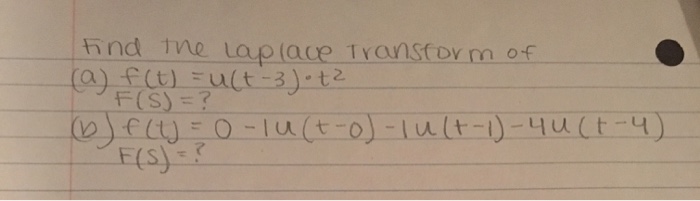 Find the Laplace Transform of
(a) f(t) = u(t-3)·t²
F(S) = ?
(b) f(t) = 0 - 1u(t-0) - 1u(t-1) - 4u(t-4)
F(S) = ?